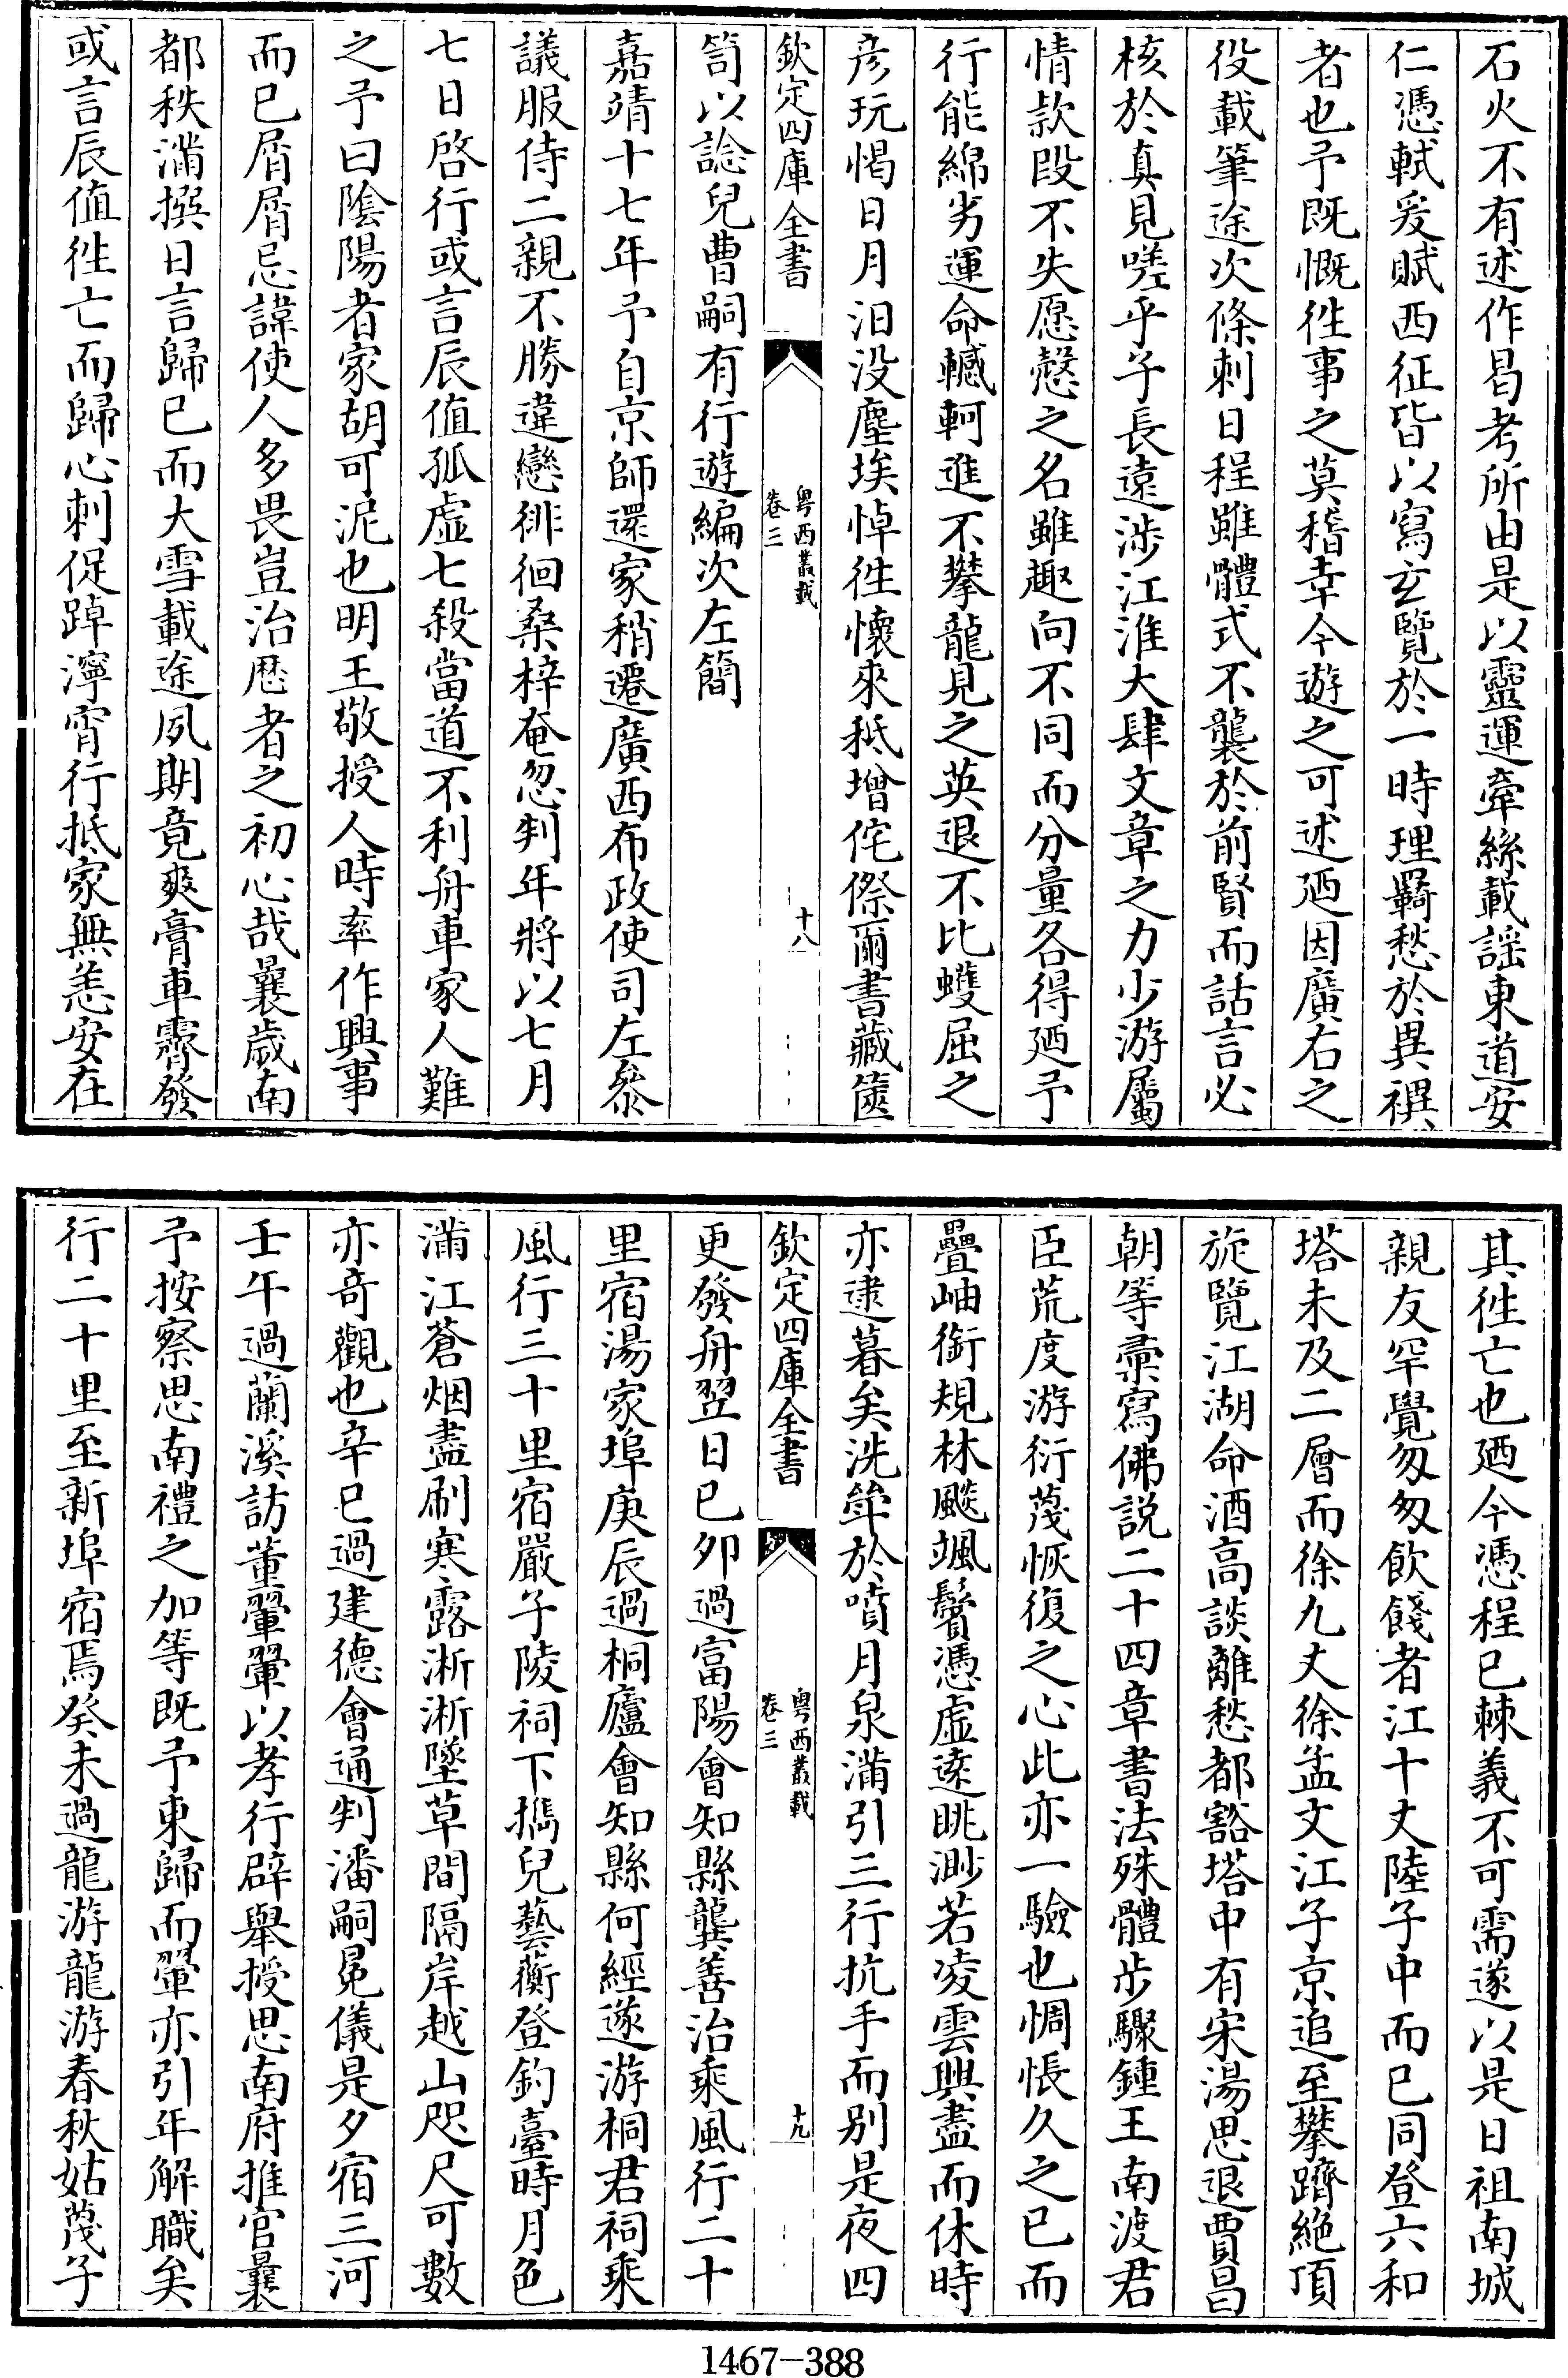 石火不有述作曷考所由是以靈運牽絲載謡東道安
仁憑軾爰賦西征皆以寫玄覽於一時理羇愁於異禩
者也予既慨徃事之莫稽幸今遊之可述廼因廣右之
役載筆途次條刺日程雖體式不襲於前賢而話言必
核於真見嗟乎子長遠涉江淮大肆文章之力少游屬
情款段不失愿慤之名雖趣向不同而分量各得廼予
行能綿劣運命轗軻進不攀龍見之英退不比蠖屈之
彦玩愒日月汩没塵埃悼徃懷來秪增侘傺爾書藏篋
欽定四庫全書
粤西叢載
卷三
十八
笥以諗兒曹嗣有行遊編次左簡
嘉靖十七年予自京師還家稍遷廣西布政使司左叅
議服侍二親不勝違戀徘徊桑梓奄忽判年將以七月
七日啓行或言辰值孤虚七殺當道不利舟車家人難
之予曰隂陽者家胡可泥也明王敬授人時率作興事
而已屑屑忌諱使人多畏豈治厯者之初心哉曩歳南
都秩滿撰日言歸已而大雪載途夙期竟爽膏車霽發
或言辰值徃亡而歸心刺促踔濘宵行抵家無恙安在
其徃亡也廼今憑程已棘義不可需遂以是日祖南城
親友罕覺匆匆飲餞者江十丈陸子中而已同登六和
塔未及二層而徐九丈徐孟文江子京追至攀躋絶頂
旋覽江湖命酒高談離愁都豁塔中有宋湯思退賈昌
朝等彚寫佛説二十四章書法殊體步驟鍾王南渡君
臣荒度游衍蔑恢復之心此亦一驗也惆悵久之已而
疊岫銜規林飈颯鬢憑虚逺眺渺若凌雲興盡而休時
亦逮暮矣洗斚於噴月泉滿引三行抗手而别是夜四
欽定四庫全書
粤西叢載
卷三
十九
更發舟翌日已卯過富陽會知縣龔善治乘風行二十
里宿湯家埠庚辰過桐廬會知縣何經遂游桐君祠乘
風行三十里宿嚴子陵祠下擕兒藝蘅登釣臺時月色
滿江蒼烟盡刷寒露淅淅墜草間隔岸越山咫尺可數
亦奇觀也辛巳過建德會通判潘嗣冕儀是夕宿三河
壬午過蘭溪訪董翬翬以孝行辟舉授思南府推官曩
予按察思南禮之加等既予東歸而翬亦引年解職矣
行二十里至新埠宿焉癸未過龍游龍游春秋姑蔑子
1467-388